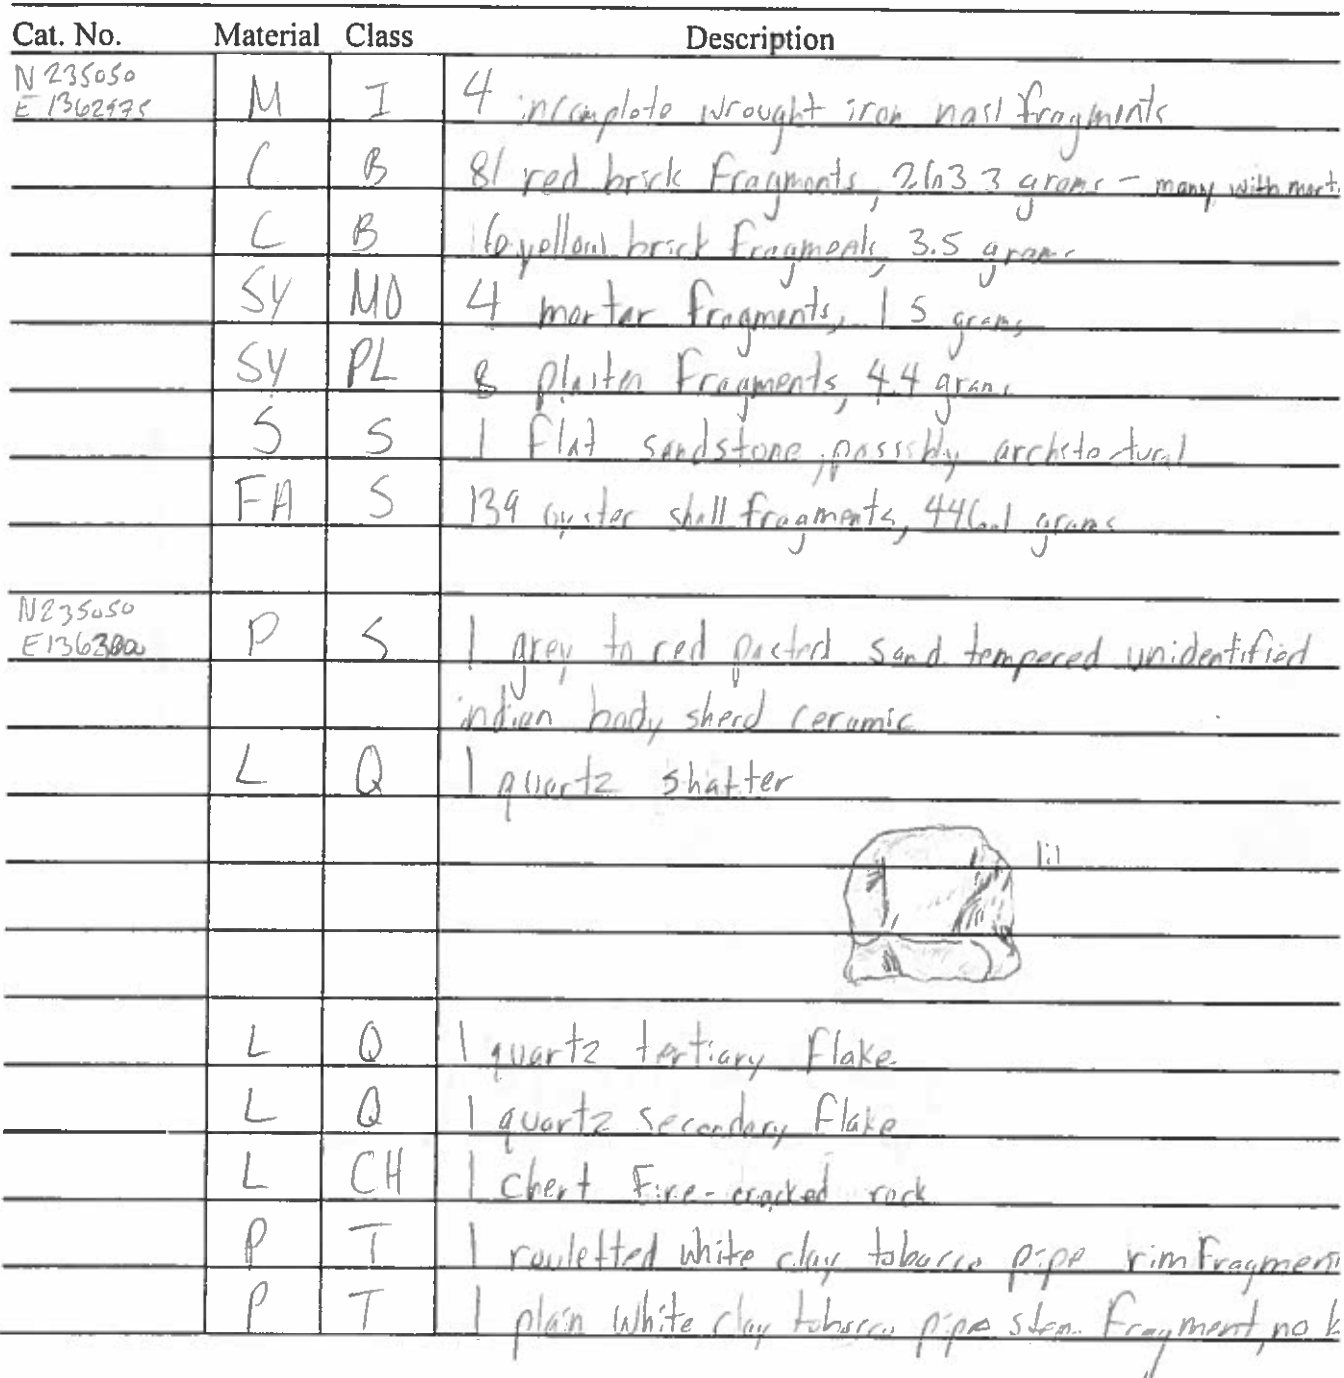 Cat. No. Material Class Description
N 235050
E 1362975 M I 4 incomplete wrought iron nail fragments
C B 81 red brick fragments, 2603.3 grams - many with mort
C B 16 yellow brick fragments, 3.5 grams
SY MO 4 mortar fragments, 1.5 grams
SY PL 8 plaster fragments, 4.4 grams
S S 1 flat sandstone, possibly architectural
FA S 139 oyster shell fragments, 446.1 grams
N235050
E1363000 P S 1 grey to red pasted sand tempered unidentified
indian body sherd ceramic
L Q 1 quartz shatter
1:1
L Q 1 quartz tertiary flake
L Q 1 quartz secondary flake
L CH 1 chert fire-cracked rock
P T 1 rouletted white clay tobacco pipe rim fragment
P T 1 plain white clay tobacco pipe stem fragment, no